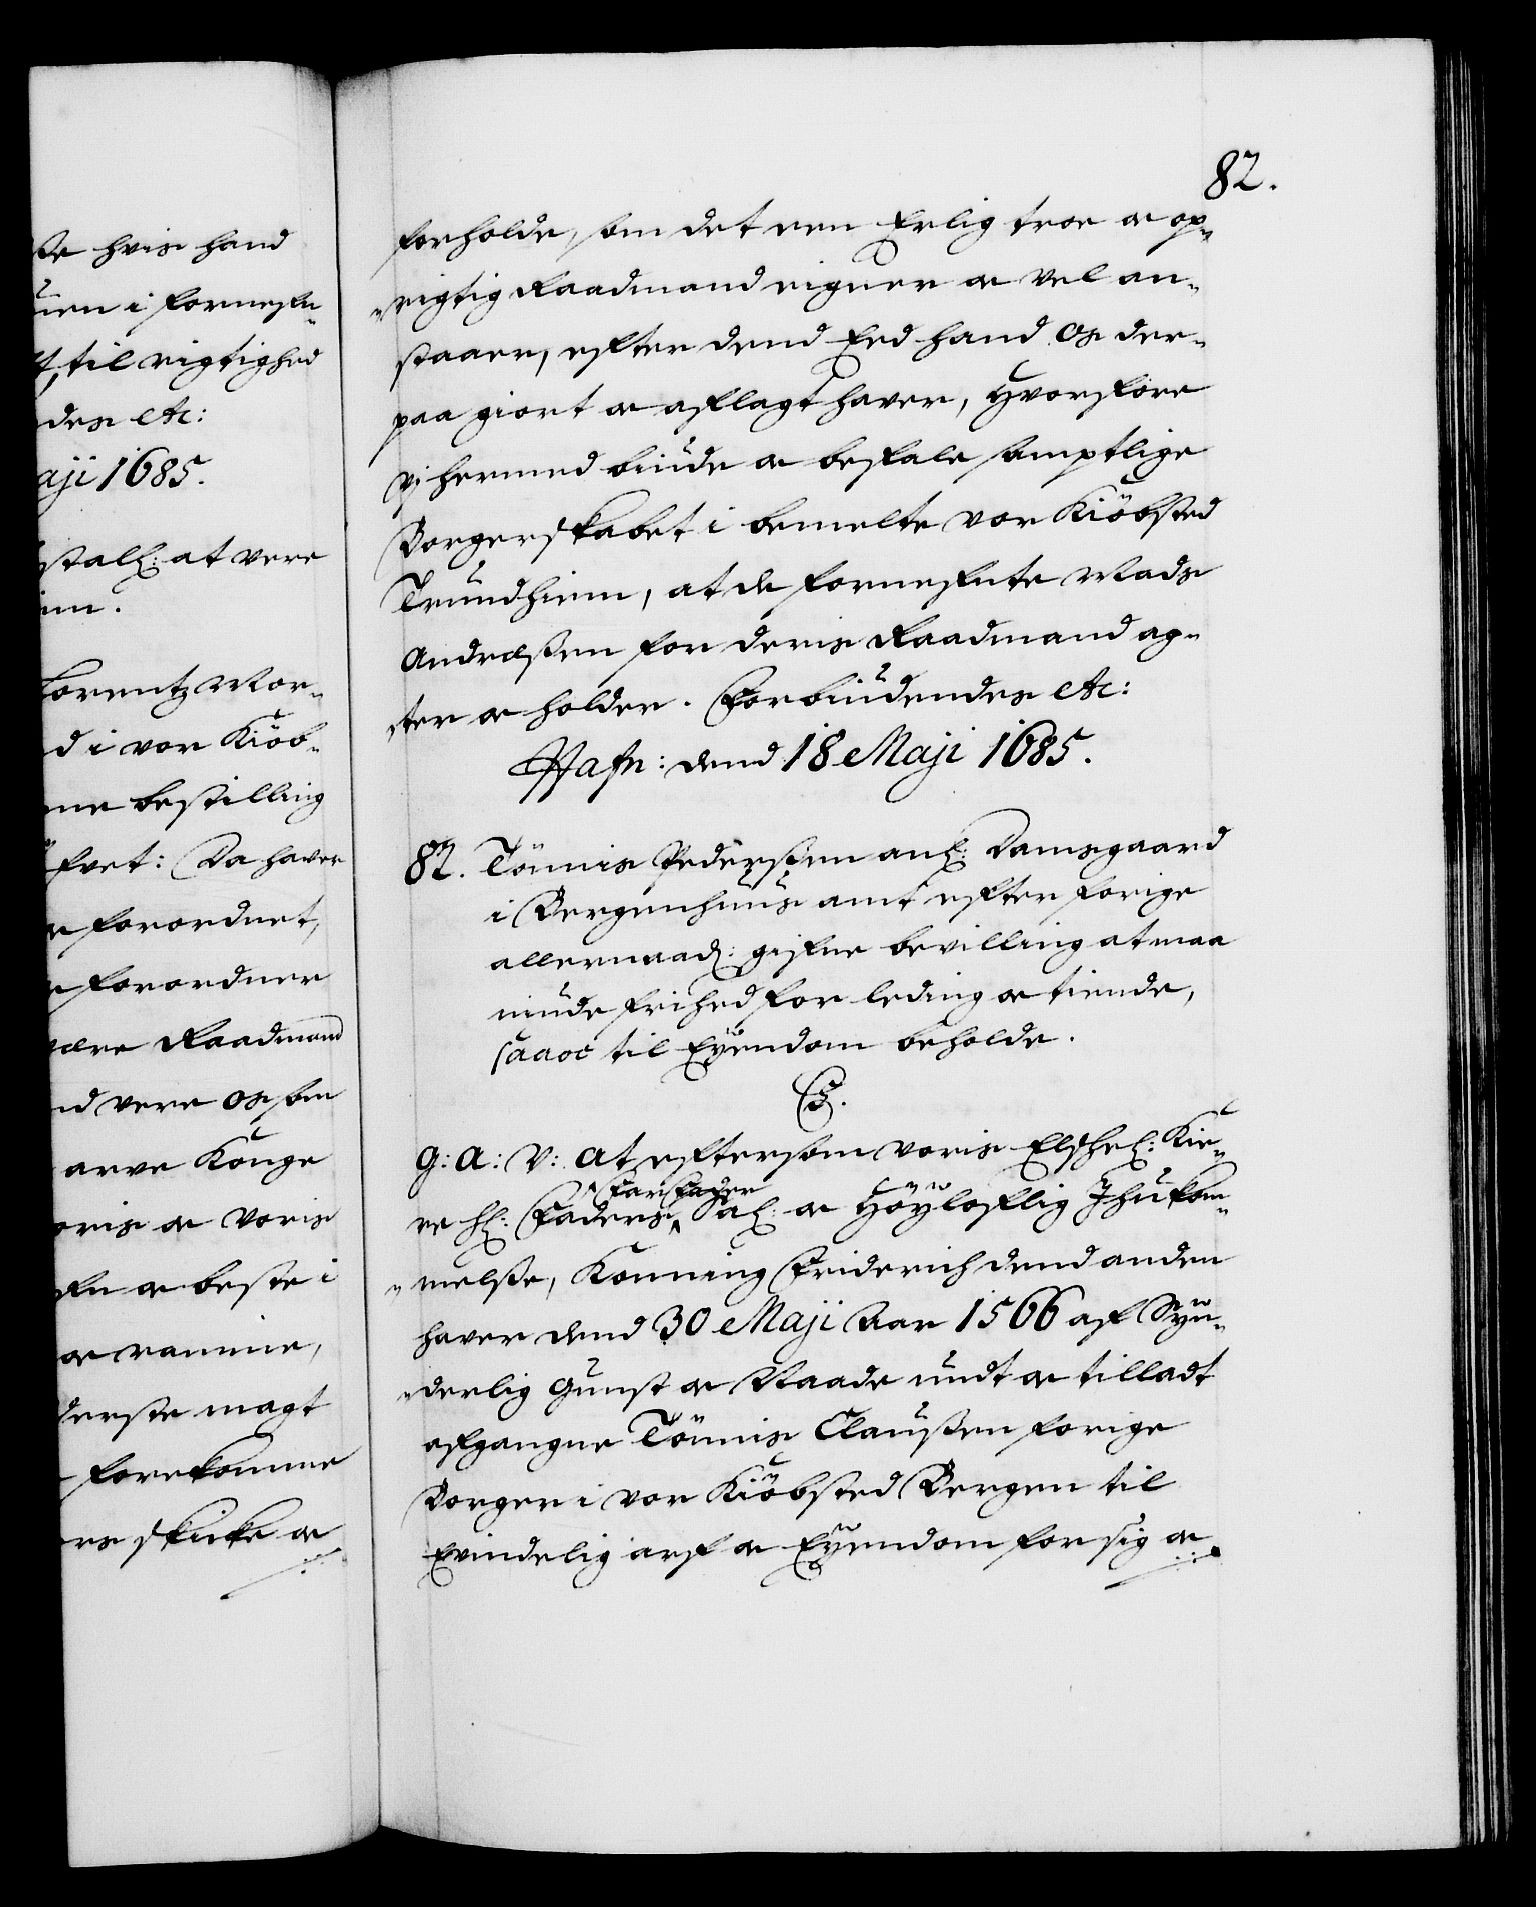 82.
forholde, som det een Erlig troe oc op-
rigtig Raadmand eigner oc vel an-
staaer, efter dend Eed hand Os der-
paa giort oc aflagt haver, Hvorfore
Vj hermed biude oc befale samptlige
Borgerskabet i bemelte vor Kiöbsted
Trundhiem, at de fornefnte Mads
Andreßen for deris Raadmand ag-
ter oc holder. Forbiudendes etc:
Hafn: dend 18 Maji 1685.
82. Tönnis Pederßen anl: Damsgaard
i Bergenhuus amt efter forige
allernaad: gifne bevilling at maa
niude frihed for leding oc tiende,
saaoc til Eÿendom beholde.
C5.
G: A: V: at eftersom voris Elschel: Kie-
re Hl: Faders FarFader Sal: oc Höÿloflig Ihukom-
melse, Konning Friderich dend anden
haver dend 30 Maji Aar 1566 af Syn-
derlig Gunst oc Naade undt oc tilladt
afgangne Tönnis Claußen forige
Borger i vor Kiöbsted Bergen til
Evindelig arf oc Eÿendom for sig oc
te hvis hand
uen i fornefn-
t, til rigtighed
des etc:
aji 1685.
stalt: at vere
em.
Lorentz Mor-
d i vor Kiöb-
ne bestilling
fvet: Da haver
forordnet,
forordner
vere Raadmand
nd vere Os som
arve Konge
oris oc Voris
fn oc beste i
oc ramme,
derste magt
forekomme
ers skicke oc